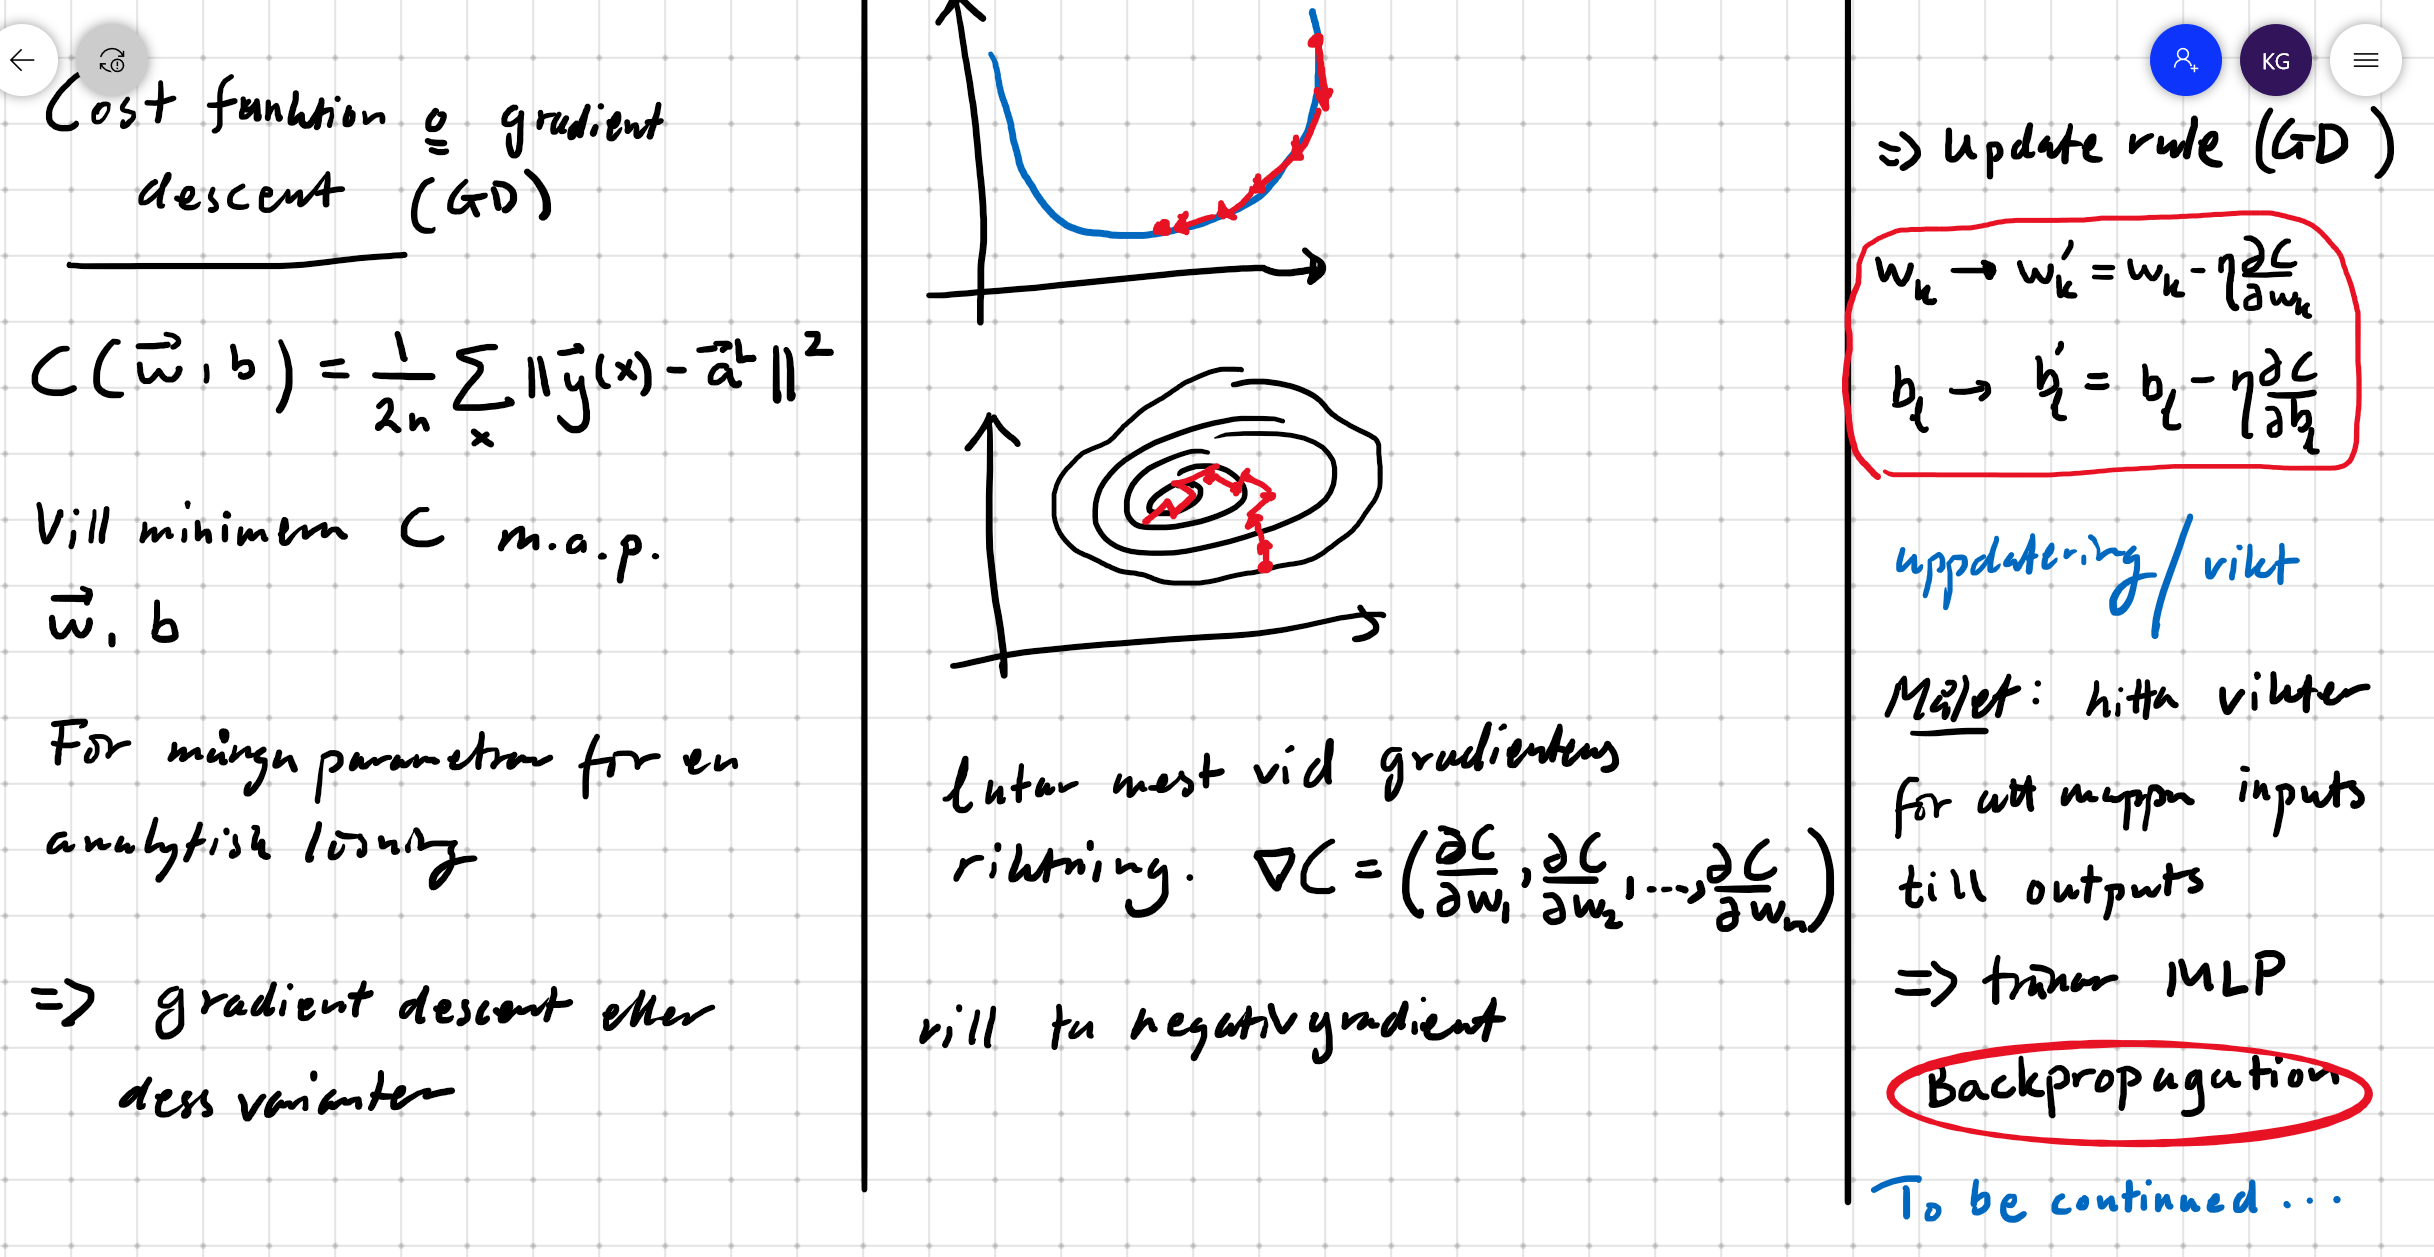 Cost funktion o gradient
descent (GD)
C(w⃗, b) = 1/2n ∑_x ||y⃗(x) - a⃗^L||²
Vill minimera C m.a.p.
w⃗, b
För många parametrar för en
analytisk lösning
=> gradient descent eller
dess varianter
lutar mest vid gradientens
riktning. ∇C = (∂C/∂w₁, ∂C/∂w₂, ..., ∂C/∂wₙ)
vill ta negativ gradient
KG
=> Update rule (GD)
w_k → w_k' = w_k - η ∂C/∂w_k
b_l → b_l' = b_l - η ∂C/∂b_l
uppdatering / vikt
Målet: hitta vikter
för att mappa inputs
till outputs
=> tränar MLP
Backpropagation
To be continued...